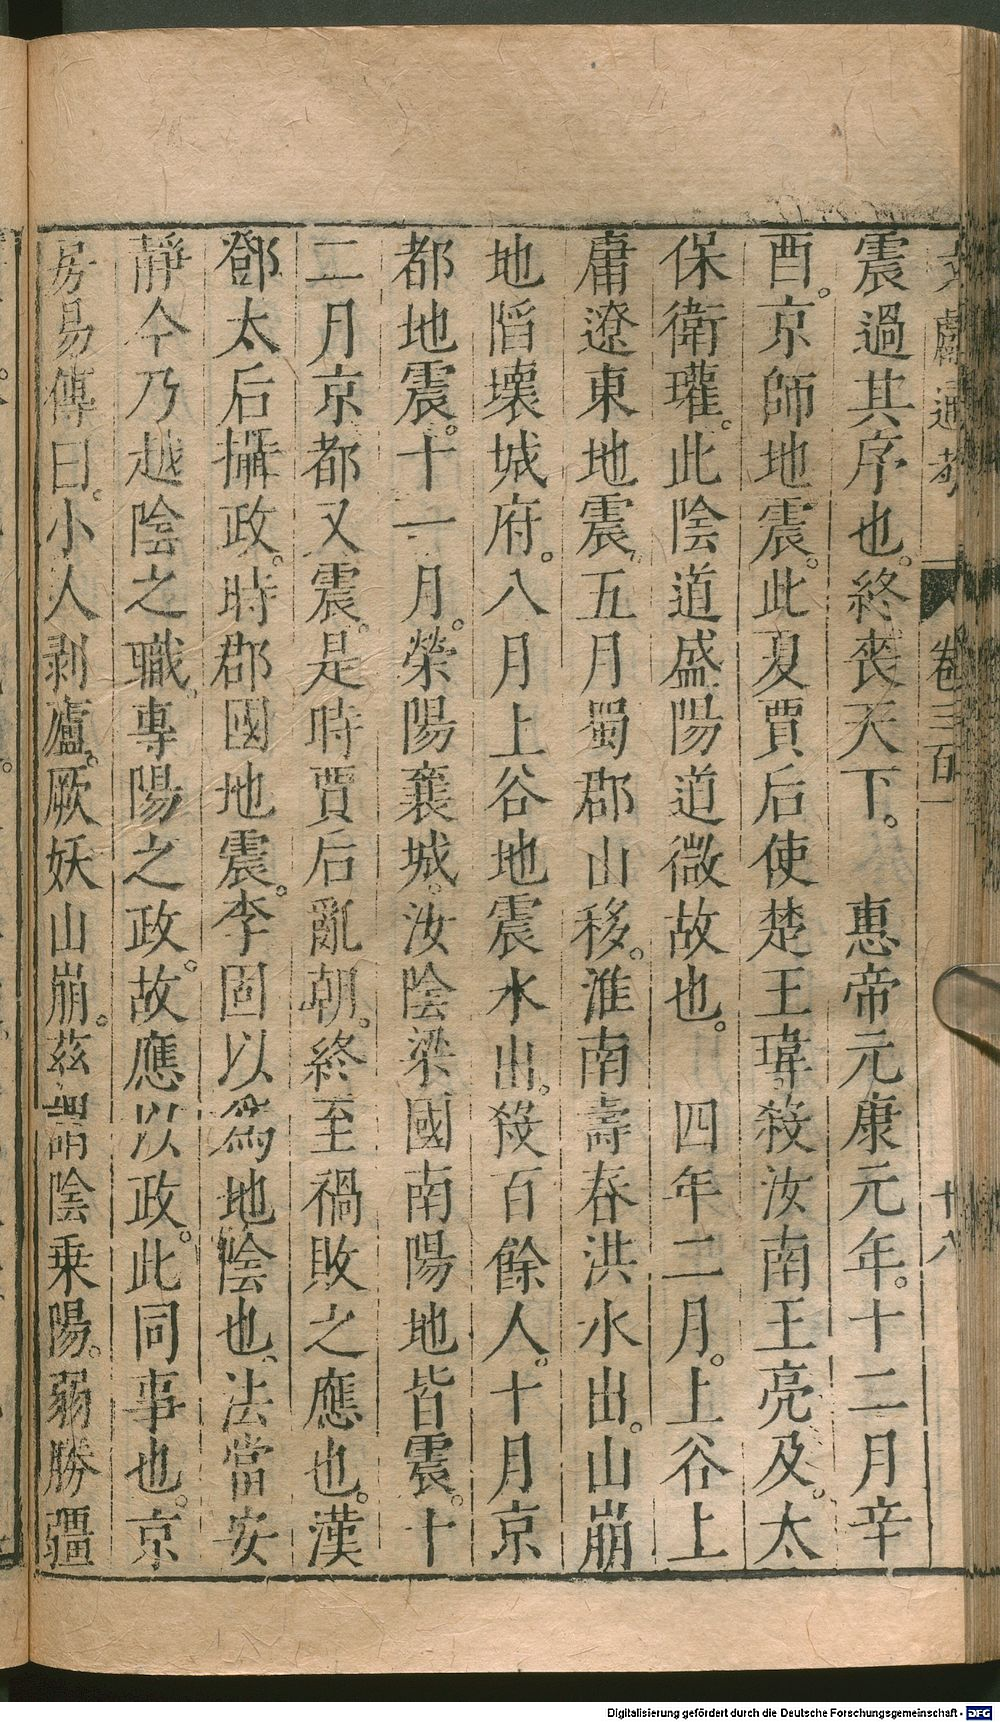 文獻通考 卷三百一 十八
震過其序也。終喪天下。 惠帝元康元年。十二月辛
酉。京師地震。此夏賈后使楚王瑋。殺汝南王亮及。太
保衛瓘。此陰道盛陽道微故也。 四年二月。上谷上
庸遼東地震。五月蜀郡山移。淮南壽春洪水出。山崩
地㿭壞城府。八月上谷地震水出。殺百餘人。十月京
都地震。十一月。滎陽襄城。汝陰梁國南陽地皆震。十
二月京都又震。是時賈后亂朝。終至禍敗之應也。漢
鄧太后攝政。時郡國地震。李固以爲地陰也、法當安
靜今乃越陰之職。專陽之政。故應以政。此同事也。京
房易傳曰。小人剥廬。厥妖山崩。茲謂陰乗陽。弱勝疆
Digitalisierung gefördert durch die Deutsche Forschungsgemeinschaft - DFG